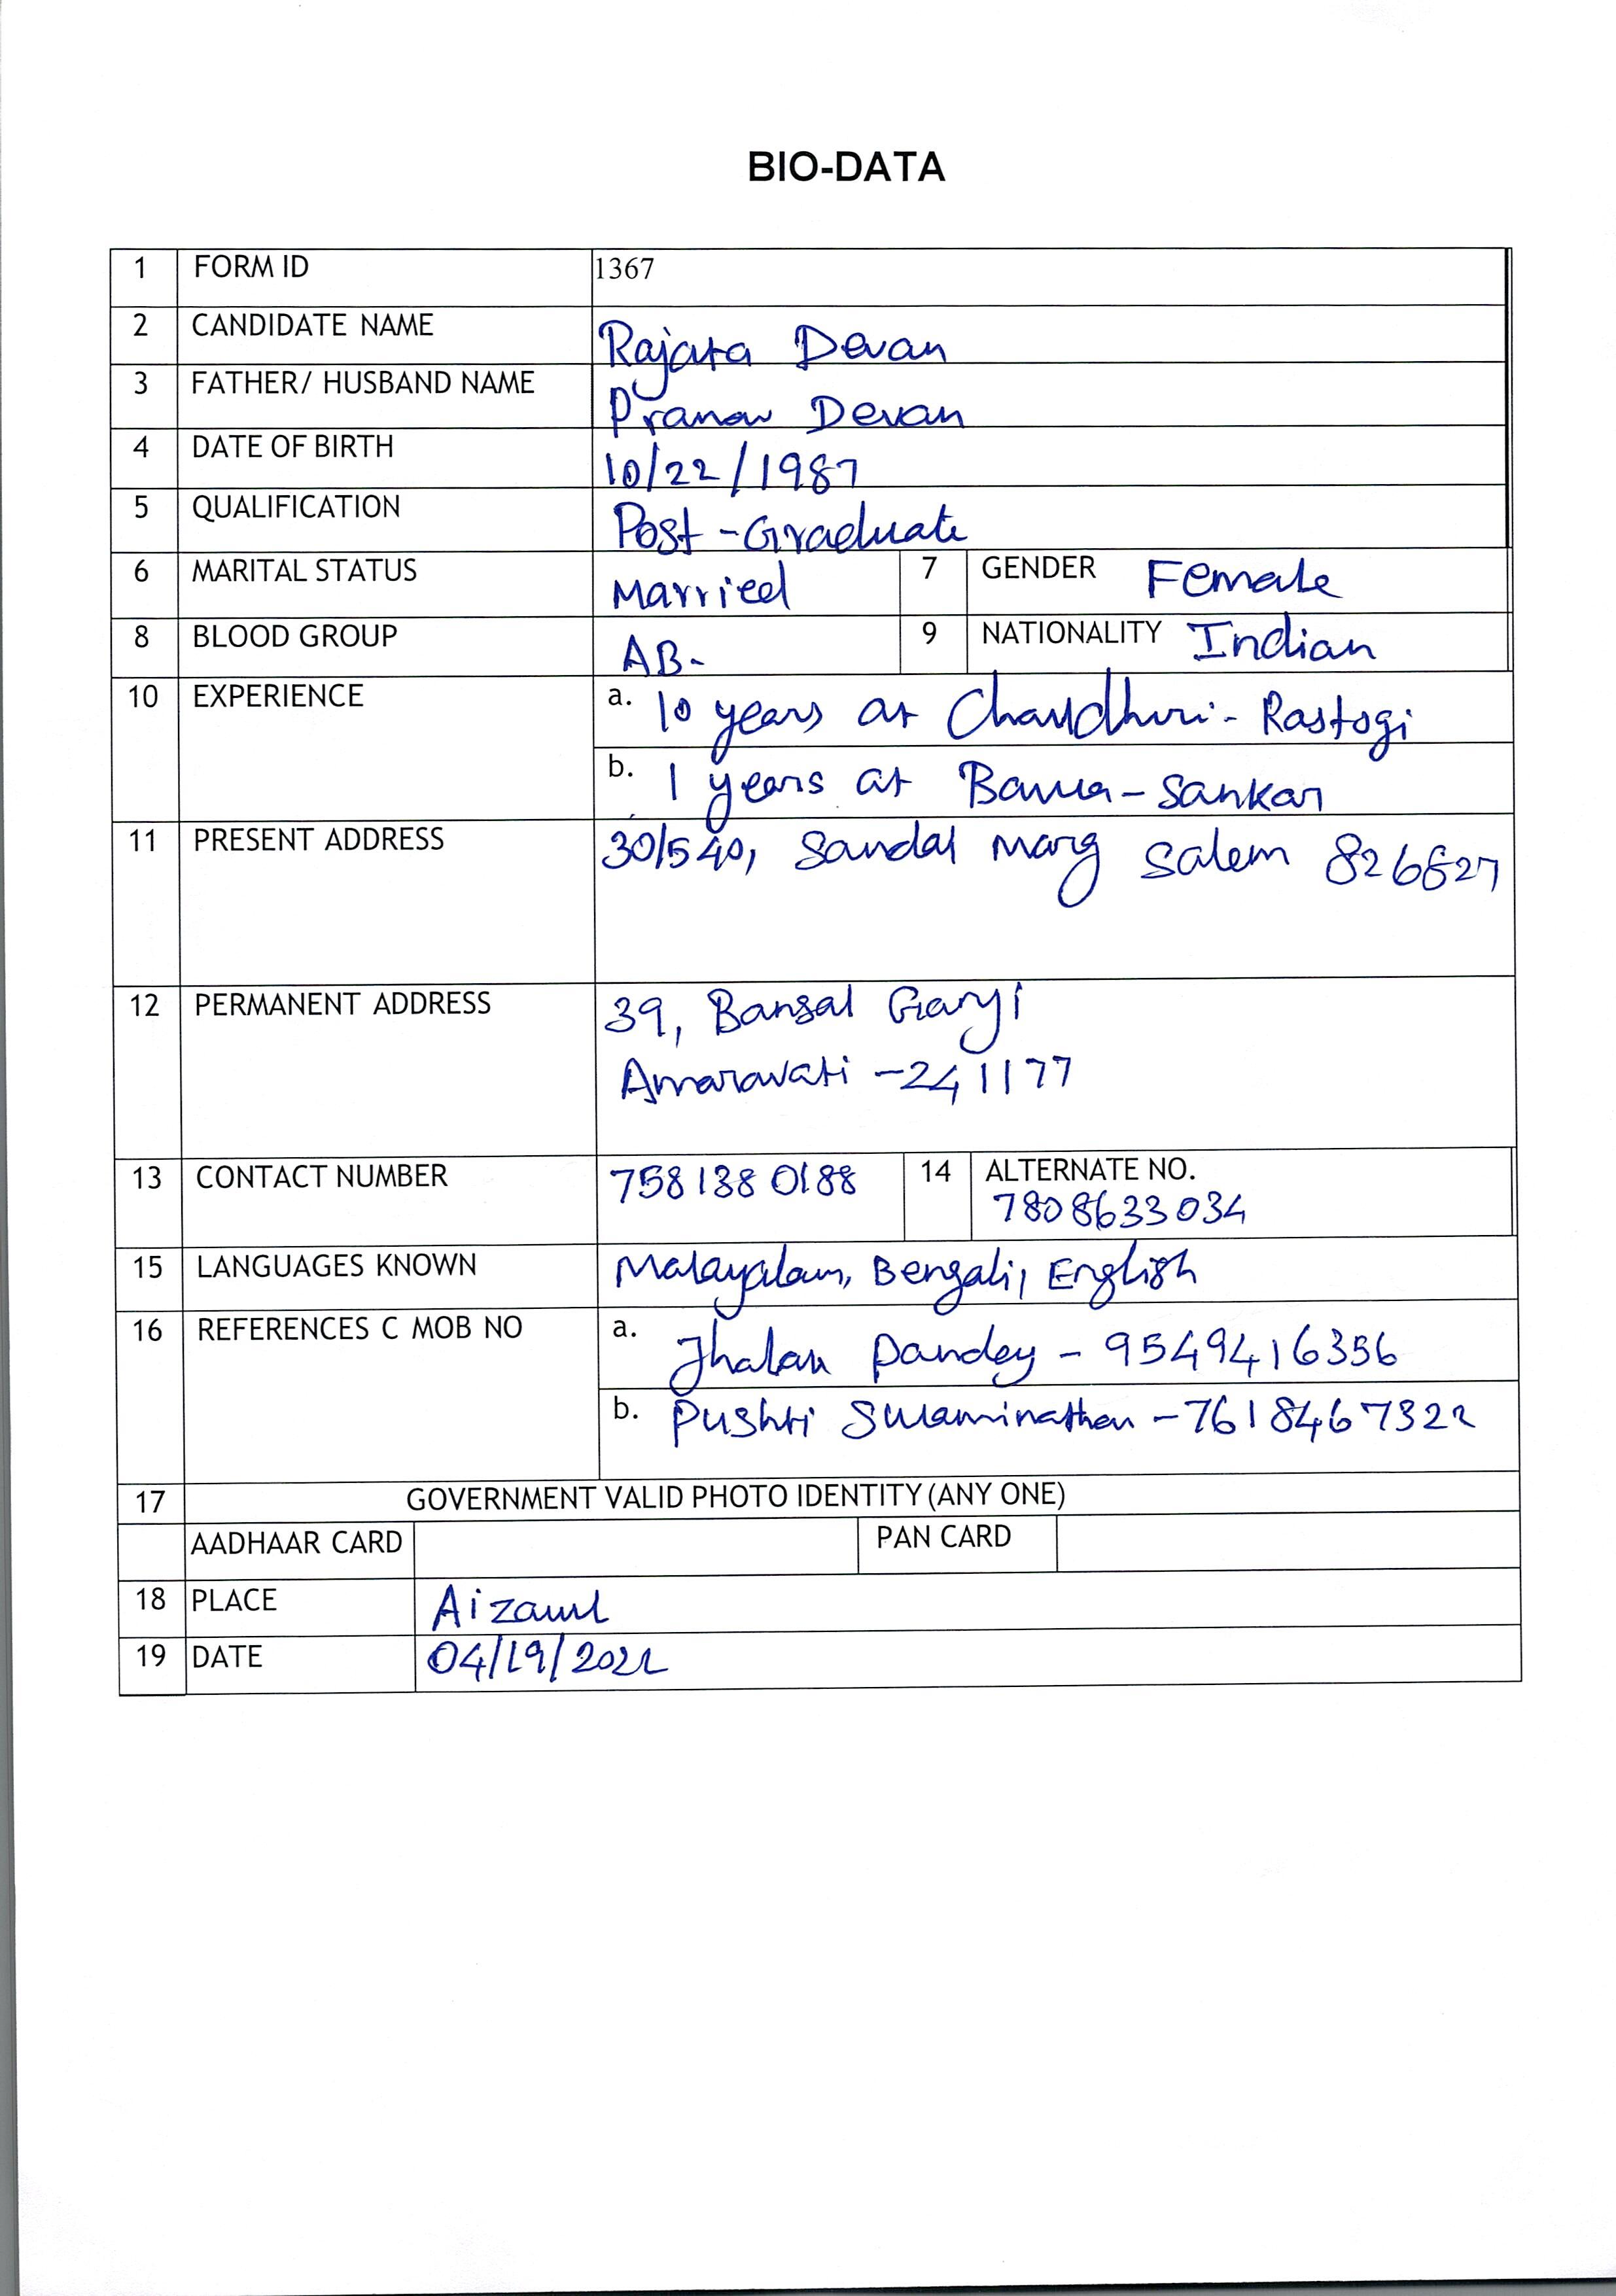 BIO-DATA
1 FORM ID 1367
2 CANDIDATE NAME Rajata Devan
3 FATHER/ HUSBAND NAME Pranav Devan
4 DATE OF BIRTH 10/22/1987
5 QUALIFICATION Post-Graduate
6 MARITAL STATUS Married 7 GENDER Female
8 BLOOD GROUP AB- 9 NATIONALITY Indian
10 EXPERIENCE a. 10 years at Chaudhuri-Rastogi
b. 1 years at
11 PRESENT ADDRESS 30/540, Sandal Marg Salem 826627
12 PERMANENT ADDRESS 39, Bansal Ganj
Amaravati -241177
13 CONTACT NUMBER 7581380188 14 ALTERNATE NO.
7808633034
15 LANGUAGES KNOWN Malayalam, Bengali, English
16 REFERENCES C MOB NO a. Pandey - 9549416356
b. Pushti Swaminathan -7618467322
17 GOVERNMENT VALID PHOTO IDENTITY (ANY ONE)
AADHAAR CARD PAN CARD
18 PLACE Aizawl
19 DATE 04/19/2022